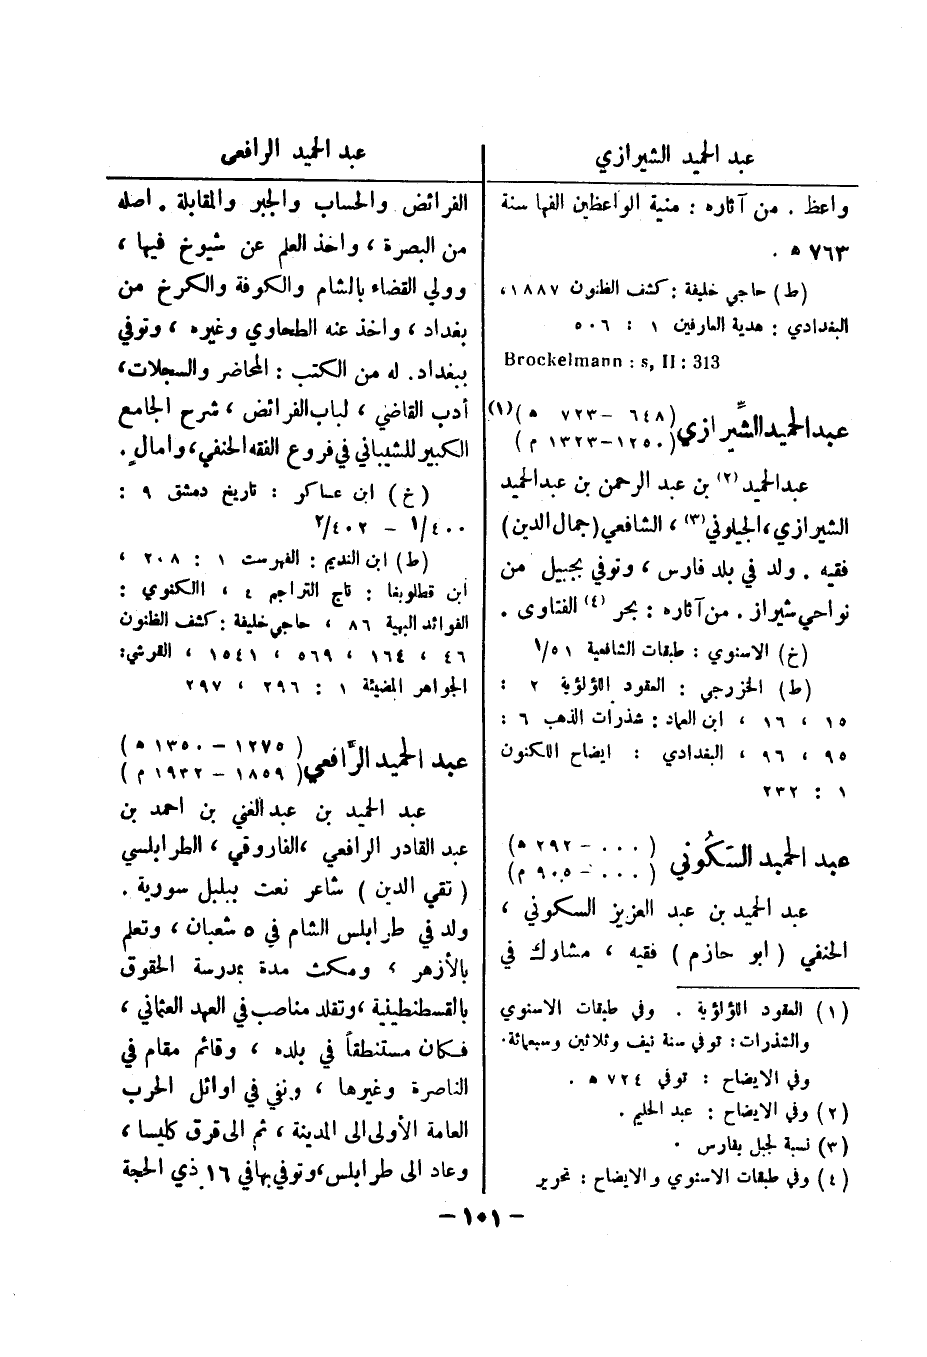 عبد الحميد الشيرازي
واعظ . من آثاره : منية الواعظين الفها سنة
٧٦٣ ه .
(ط) حاجي خليفة : كشف الظنون ١٨٨٧،
البغدادي : هدية العارفين ١ : ٥٠٦
Brockelmann : s, II : 313
عبد الحميد الشِّيرازي (٦٤٨ – ٧٢٣ ه)(١)
(١٢٥٠ – ١٣٢٣ م)
عبد الحميد (٢) بن عبد الرحمن بن عبد الحميد
الشيرازي، الجيلوني (٣)، الشافعي (جمال الدين)
فقيه . ولد في بلد فارس ، وتوفي بجبيل من
نواحي شيراز . من آثاره : بحر (٤) الفتاوى .
(خ) الاسنوي : طبقات الشافعية ١/٥١
(ط) الخزرجي : العقود اللؤلؤية ٢ :
١٥ ، ١٦ ، ابن العماد : شذرات الذهب ٦ :
٩٥ ، ٩٦ ، البغدادي : ايضاح المكنون
١ : ٢٣٢
عبد الحميد السَكُوني (٠٠٠ – ٢٩٢ ه)
(٠٠٠ – ٩٠٥ م)
عبد الحميد بن عبد العزيز السكوني ،
الحنفي ( ابو حازم ) فقيه ، مشارك في
(١) العقود اللؤلؤية . وفي طبقات الاسنوي
والشذرات : توفي سنة نيف وثلاثين وسبعمائة .
وفي الايضاح : توفي ٧٢٤ ه .
(٢) وفي الايضاح : عبد الحليم .
(٣) نسبة لجبل بفارس .
(٤) وفي طبقات الاسنوي والايضاح : تحرير
عبد الحميد الرافعي
الفرائض والحساب والجبر والمقابلة . اصله
من البصرة ، واخذ العلم عن شيوخ فيها ،
وولي القضاء بالشام والكوفة والكرخ من
بغداد ، واخذ عنه الطحاوي وغيره ، وتوفي
ببغداد. له من الكتب : المحاضر والسجلات،
أدب القاضي ، لباب الفرائض ، شرح الجامع
الكبير للشيباني في فروع الفقه الحنفي، وامالٍ.
(خ) ابن عساكر : تاريخ دمشق ٩ :
١/٤٠٠ – ٢/٤٠٢
(ط) ابن النديم : الفهرست ١ : ٢٠٨ ،
ابن قطلوبغا : تاج التراجم ٤ ، اللكنوي :
الفوائد البهية ٨٦ ، حاجي خليفة : كشف الظنون
٤٦ ، ١٦٤ ، ٥٦٩ ، ١٥٤١ ، القرشي:
الجواهر المضيئة ١ : ٢٩٦ ، ٢٩٧
عبد الحميد الرَّافعي (١٢٧٥ – ١٣٥٠ ه)
(١٨٥٩ – ١٩٣٢ م)
عبد الحميد بن عبد الغني بن احمد بن
عبد القادر الرافعي ،الفاروقي ، الطرابلسي
( تقي الدين ) شاعر نعت ببلبل سورية .
ولد في طرابلس الشام في ٥ شعبان ، وتعلم
بالأزهر ، ومكث مدة بمدرسة الحقوق
بالقسطنطينية ،وتقلد مناصب في العهد العثماني ،
فكان مستنطقاً في بلده ، وقائم مقام في
الناصرة وغيرها ، ونفي في اوائل الحرب
العامة الأولى الى المدينة ، ثم الى قرق كليسا ،
وعاد الى طرابلس ،وتوفي بها في ١٦ ذي الحجة
– ١٠١ –